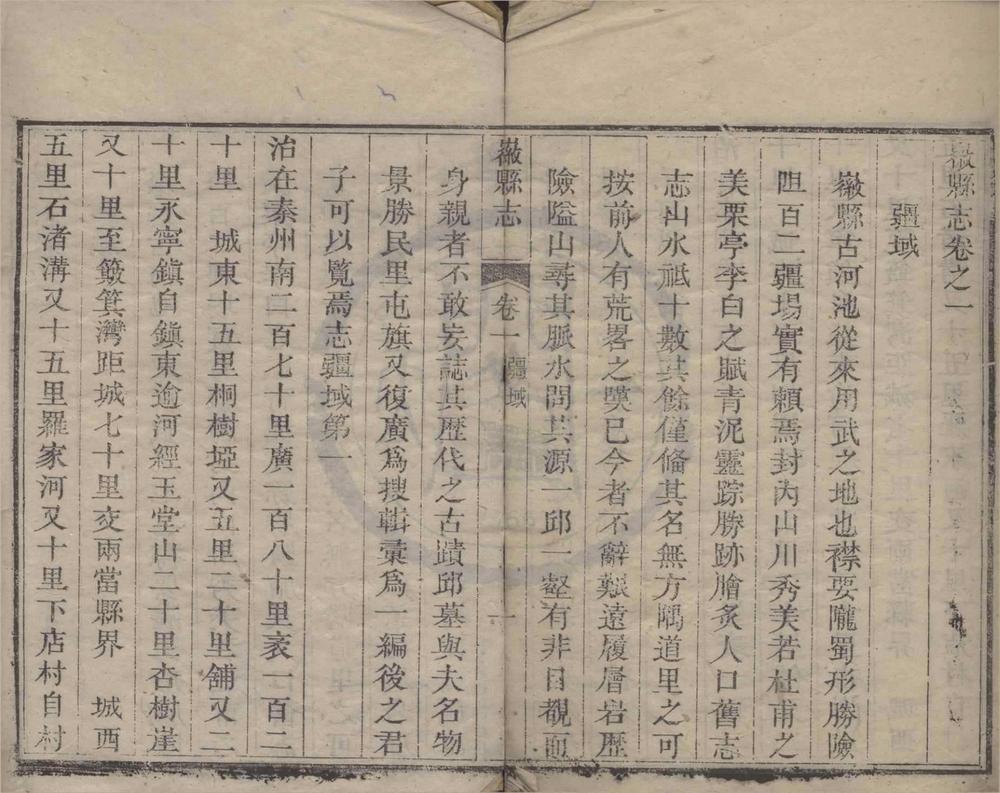 徽縣志卷之一
疆域
徽縣古河池從來用武之地也襟要隴蜀形勝險
阻百二疆場實有賴焉封內山川秀美若杜甫之
美栗亭李白之賦青泥靈踪勝跡膾炙人口舊志
志山水祗十數其餘僅俻其名無方隅道里之可
按前人有荒畧之嘆已今者不辭艱遠履層岩歷
險隘山尋其脈水問其源一邱一壑有非目覩而
徽縣志 卷一 疆域 一
身親者不敢妄誌其歷代之古蹟邱墓與夫名物
景勝民里屯旗又復廣爲搜輯彙爲一編後之君
子可以覽焉志疆域第一
治在秦州南二百七十里廣一百八十里袤一百二
十里 城東十五里桐樹埡又五里二十里舖又二
十里永寧鎭自鎭東逾河經玉堂山二十里杏樹崖
又十里至簸箕灣距城七十里交兩當縣界 城西
五里石渚溝又十五里羅家河又十里下店村自村